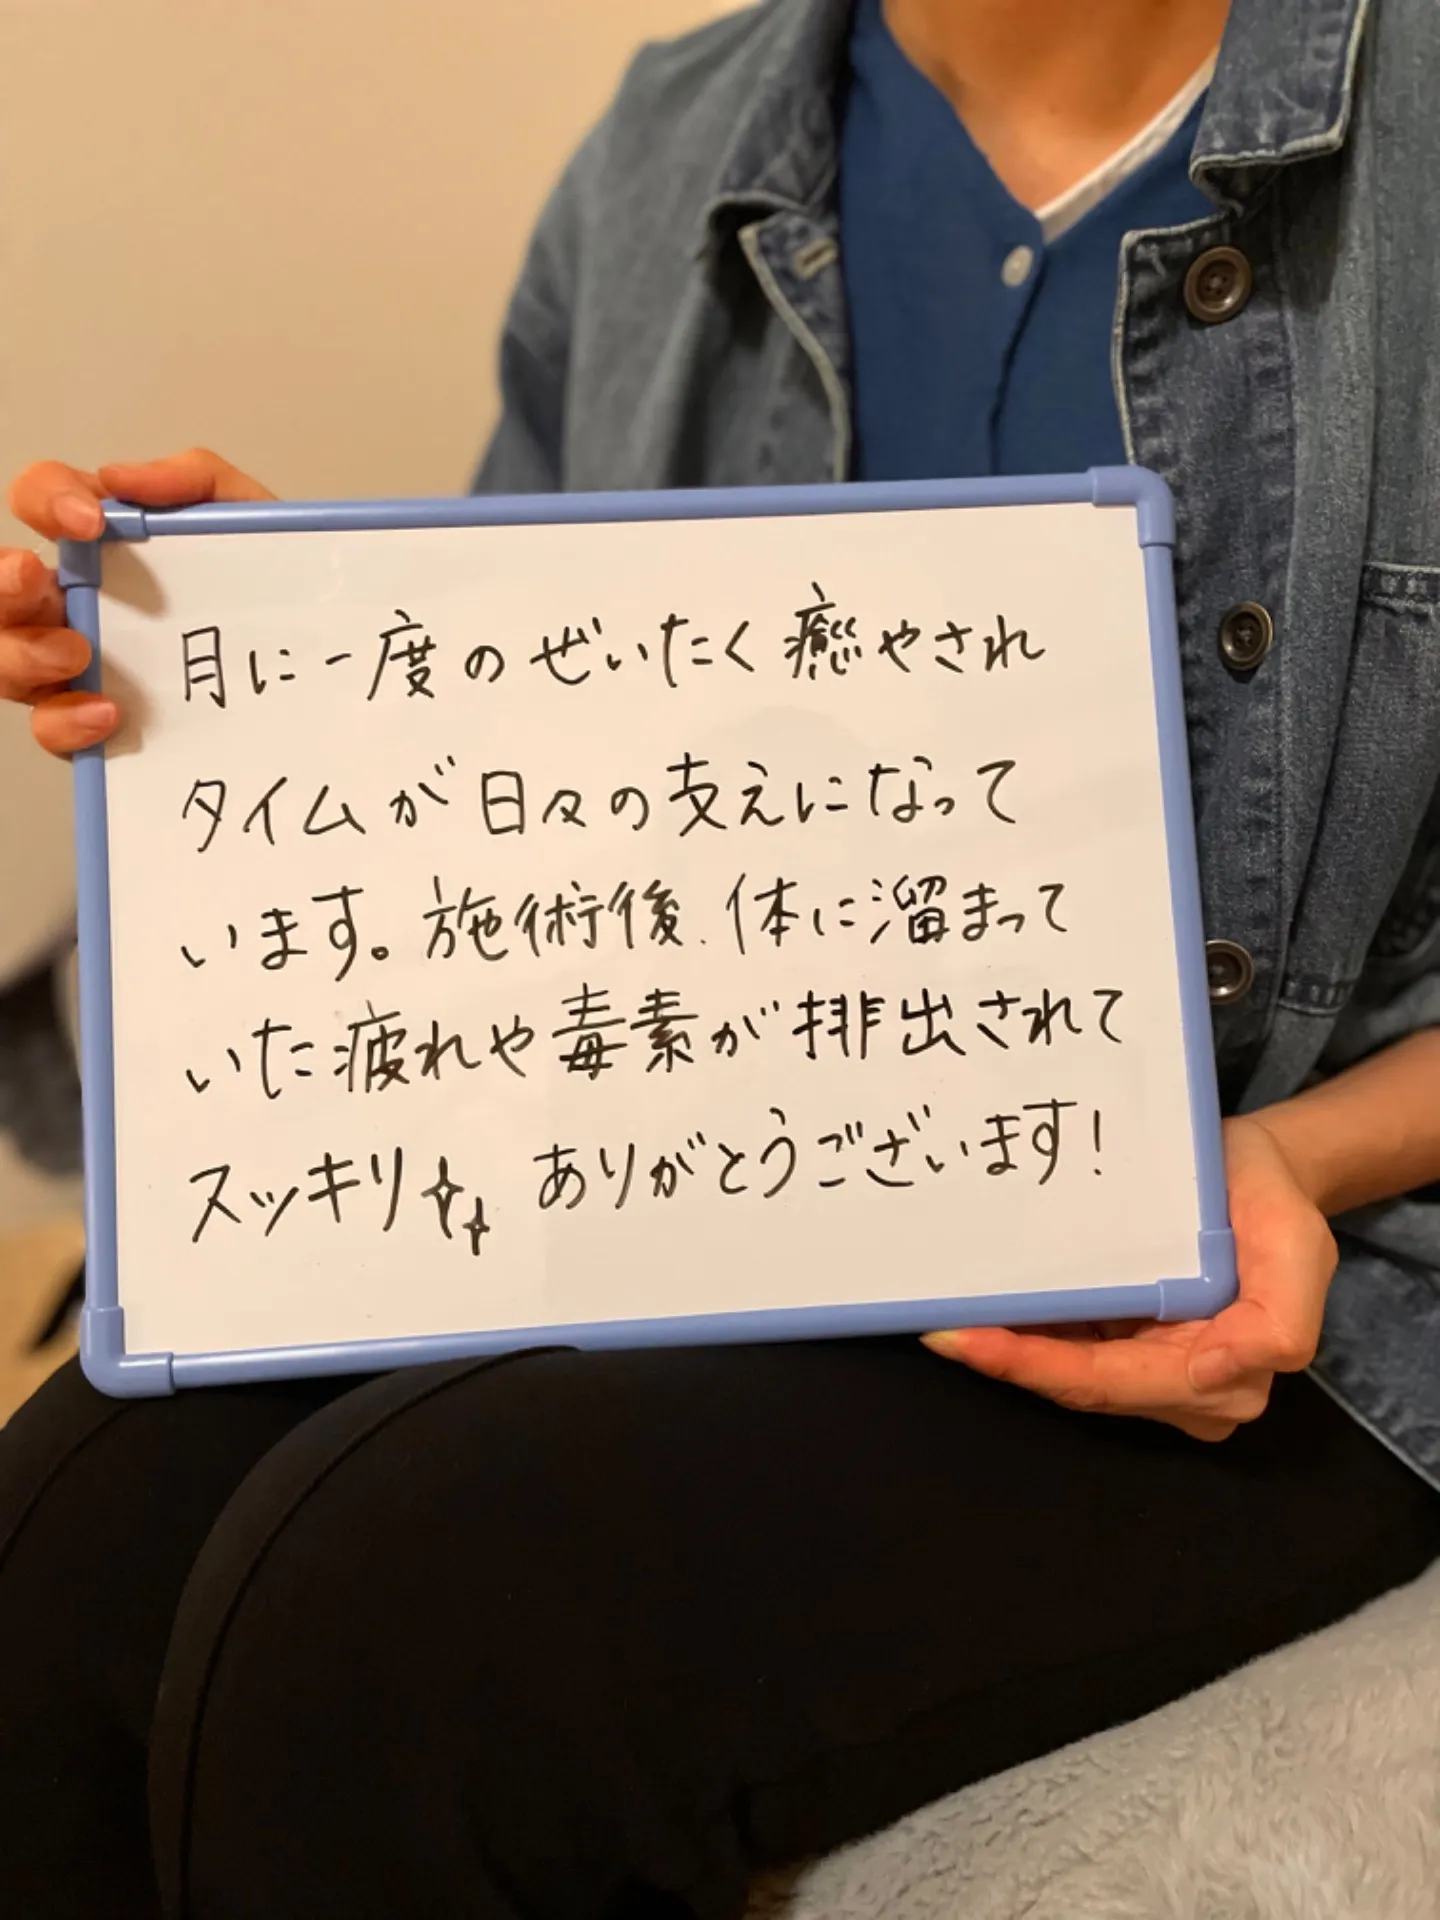 月に一度のぜいたく癒やされ
タイムが日々の支えになって
います。施術後、体に溜まって
いた疲れや毒素が排出されて
スッキリ✨ ありがとうございます！